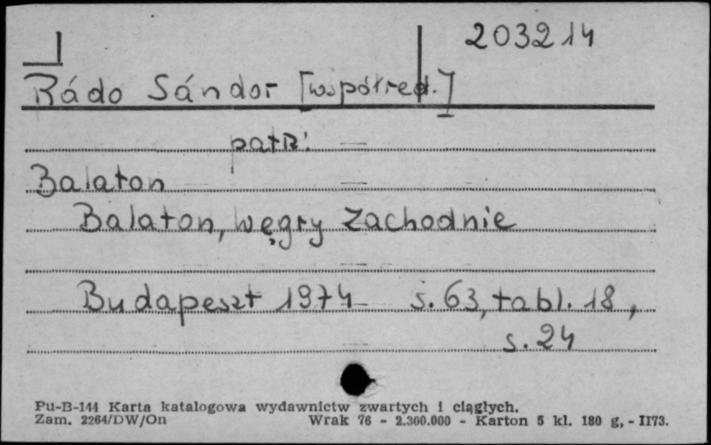 203214
Rádo Sándor [współred.]
patrz:
Balaton
Balaton, węgry zachodnie
Budapeszt 1974 s. 63, tabl. 18,
s. 24
Pu-B-144 Karta katalogowa wydawnictw zwartych i ciągłych.
Zam. 2264/DW/On Wrak 76 - 2.300.000 - Karton 5 kl. 180 g, - II73.